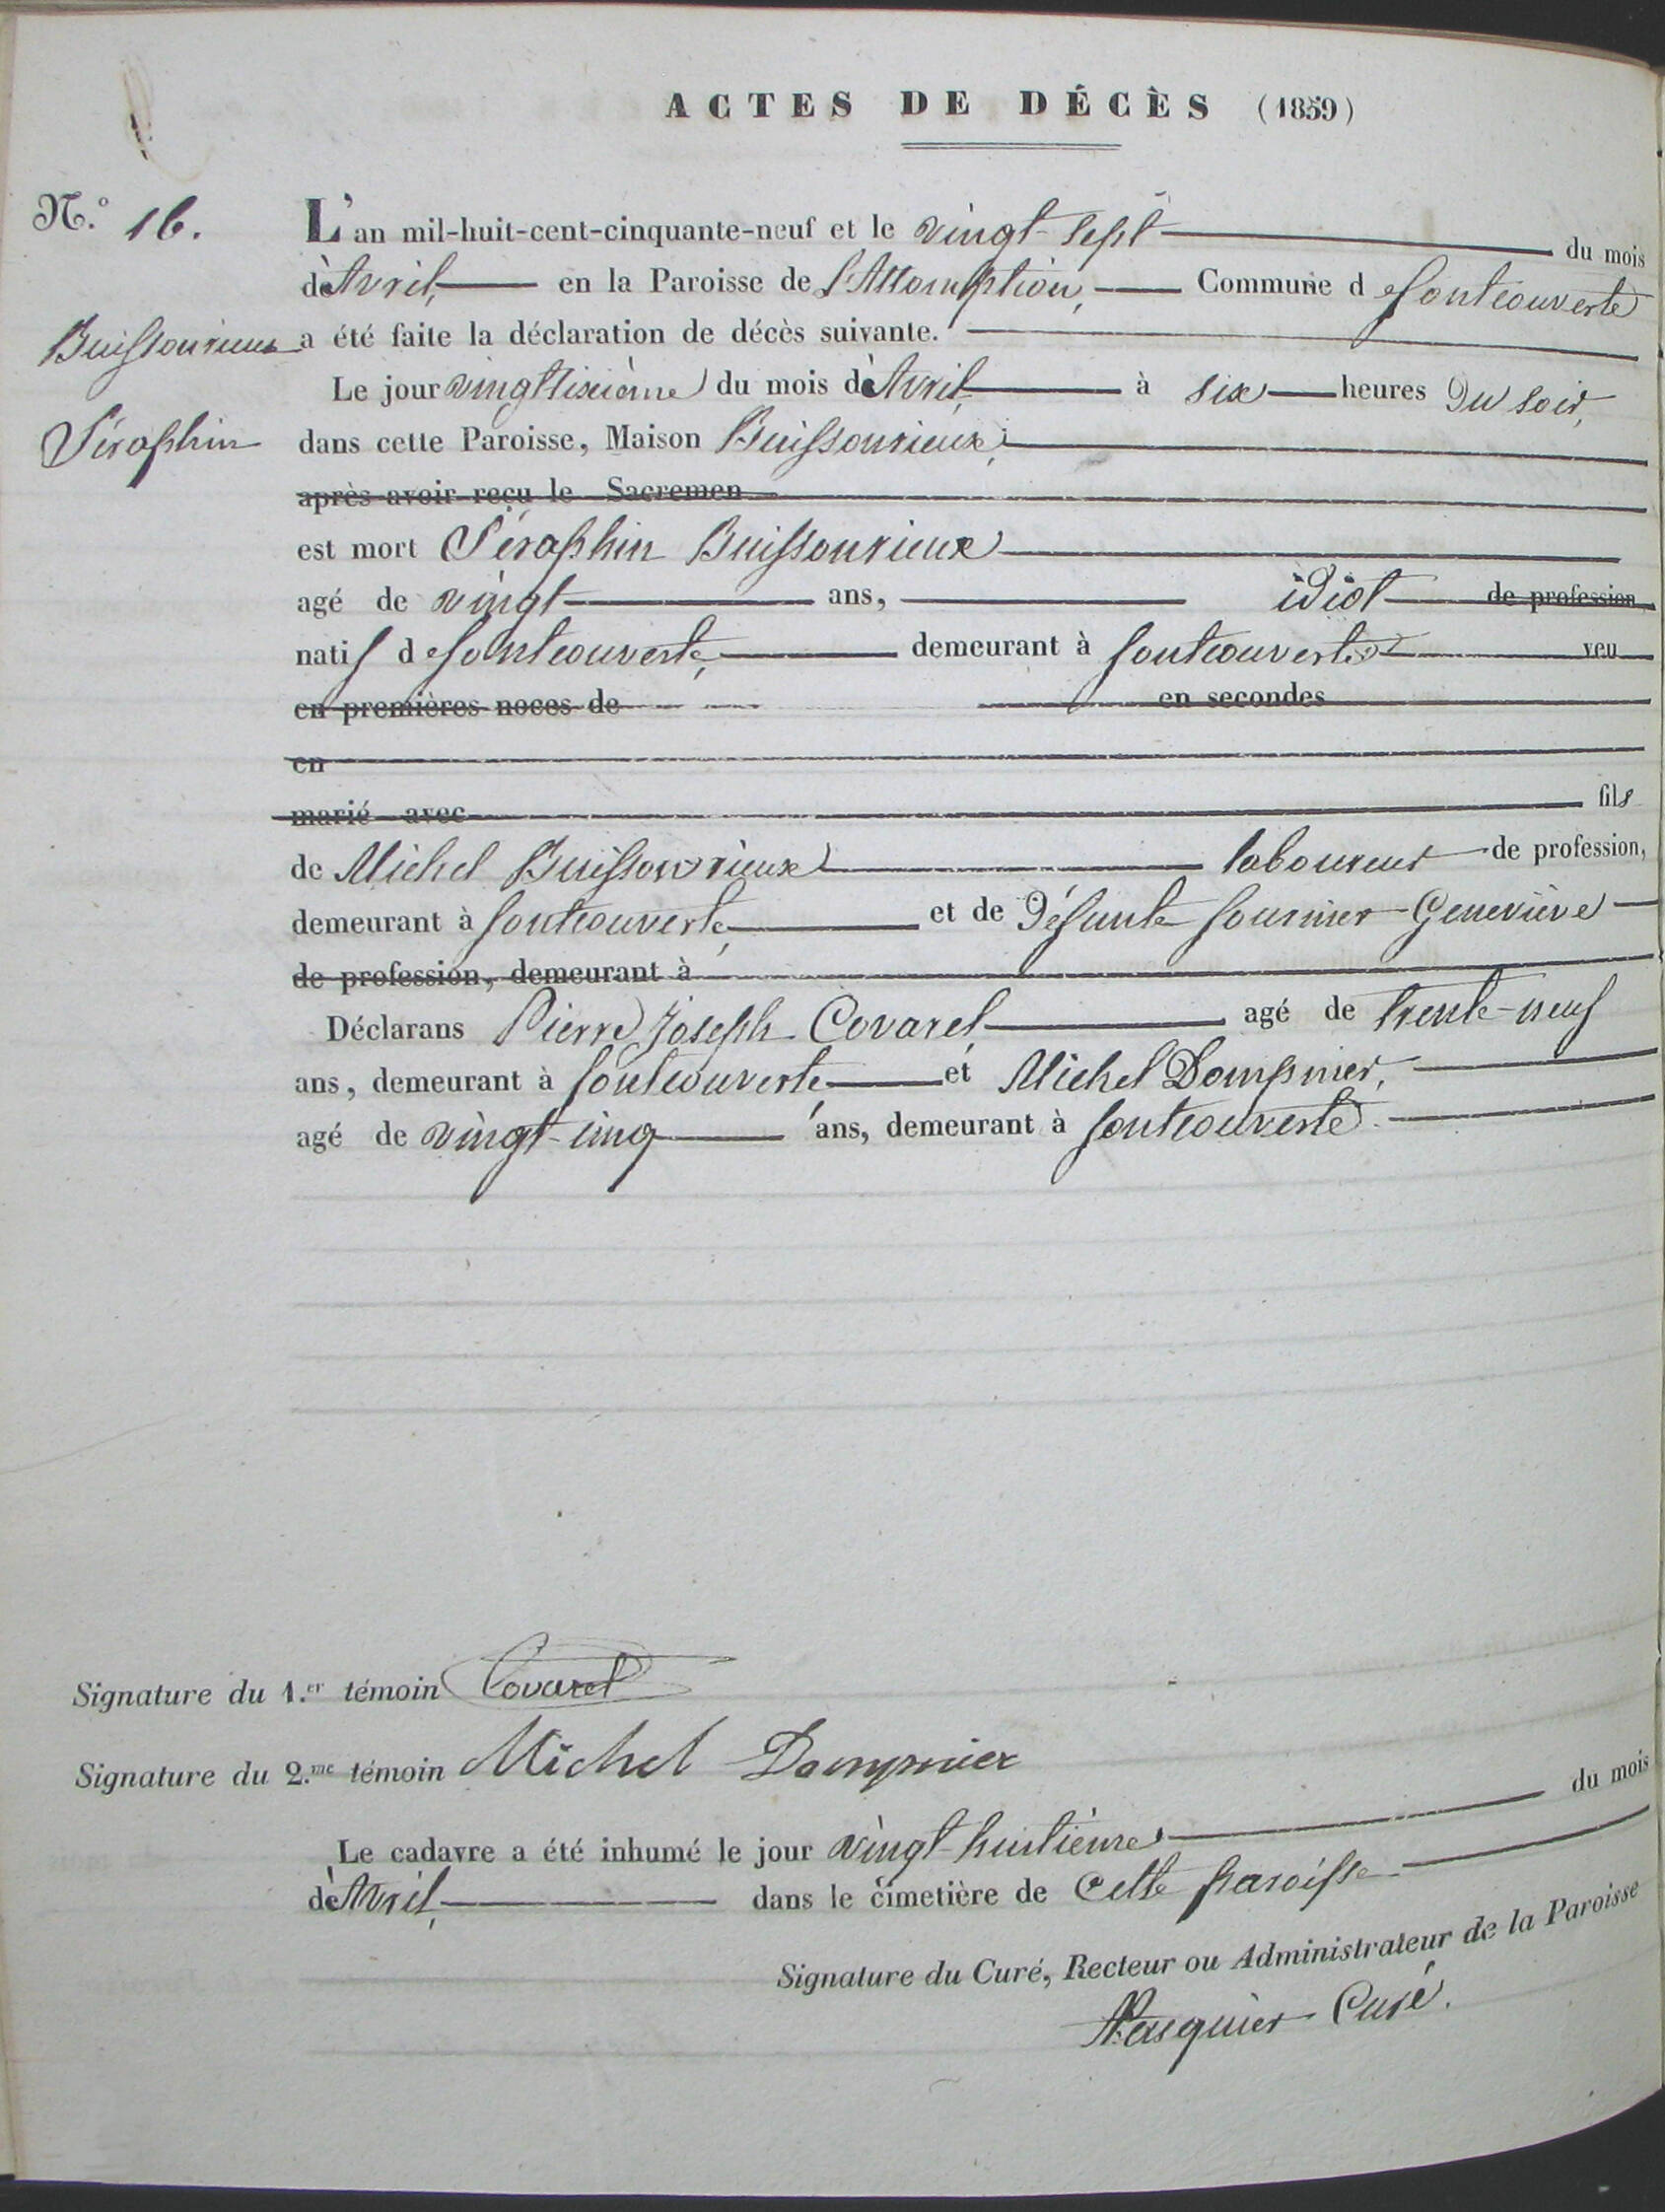 ACTES DE DÉCÈS (1859)
N.o 16.
L'an mil-huit-cent-cinquante-neuf et le vingt-sept du mois
d'Avril, en la Paroisse de l'Assomption, Commune de fontcouverte
Buissonrieux a été faite la déclaration de décès suivante.
Le jour vingt sixième du mois d'Avril à six heures du soir,
Séraphin dans cette Paroisse, Maison Buissonrieux,
après avoir reçu le Sacremen
est mort Séraphin Buissonrieux
agé de vingt ans, idiot de profession,
natif de fontcouverte, demeurant à fontcouverte veu
en premières noces de en secondes
en
marié avec fils
de Michel Buissonrieux laboureur de profession,
demeurant à fontcouverte, et de défunte fournier Geneviève
de profession, demeurant à
Déclarans Pierre Joseph Covarel agé de trente-neuf
ans, demeurant à fontcouverte et Michel Dompnier,
agé de vingt-cinq ans, demeurant à fontcouverte.
Signature du 1.er témoin Covarel
Signature du 2.me témoin Michel Dompnier
Le cadavre a été inhumé le jour vingt-huitième du mois
d'Avril, dans le cimetière de cette paroisse.
Signature du Curé, Recteur ou Administrateur de la Paroisse
Pasquier Curé.